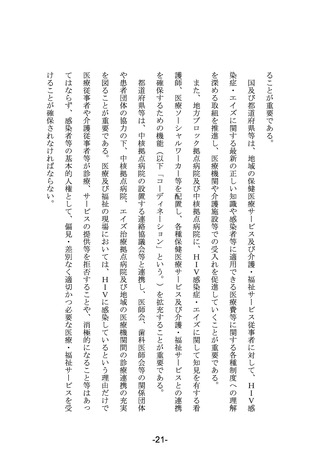 ることが重要である。
国及び都道府県等は、地域の保健医療サービス及び介護・福祉サービス従事者に対して、HIV感
染症・エイズに関する最新の正しい知識や感染者等に適用できる医療費等に関する各種制度への理解
を深める取組を推進し、医療機関や介護施設等での受入れを促進していくことが重要である。
また、地方ブロック拠点病院及び中核拠点病院に、HIV感染症・エイズに関して知見を有する看
護師、医療ソーシャルワーカー等を配置し、各種保健医療サービス及び介護・福祉サービスとの連携
を確保するための機能（以下「コーディネーション」という。）を拡充することが重要である。
都道府県等は、中核拠点病院の設置する連絡協議会等と連携し、医師会、歯科医師会等の関係団体
や患者団体の協力の下、中核拠点病院、エイズ治療拠点病院及び地域の医療機関間の診療連携の充実
を図ることが重要である。医療及び福祉の現場においては、HIVに感染しているという理由だけで
医療従事者や介護従事者等が診療、サービスの提供等を拒否することや、消極的になること等はあっ
てはならず、感染者等の基本的人権として、偏見・差別なく適切かつ必要な医療・福祉サービスを受
けることが確保されなければならない。
-21-